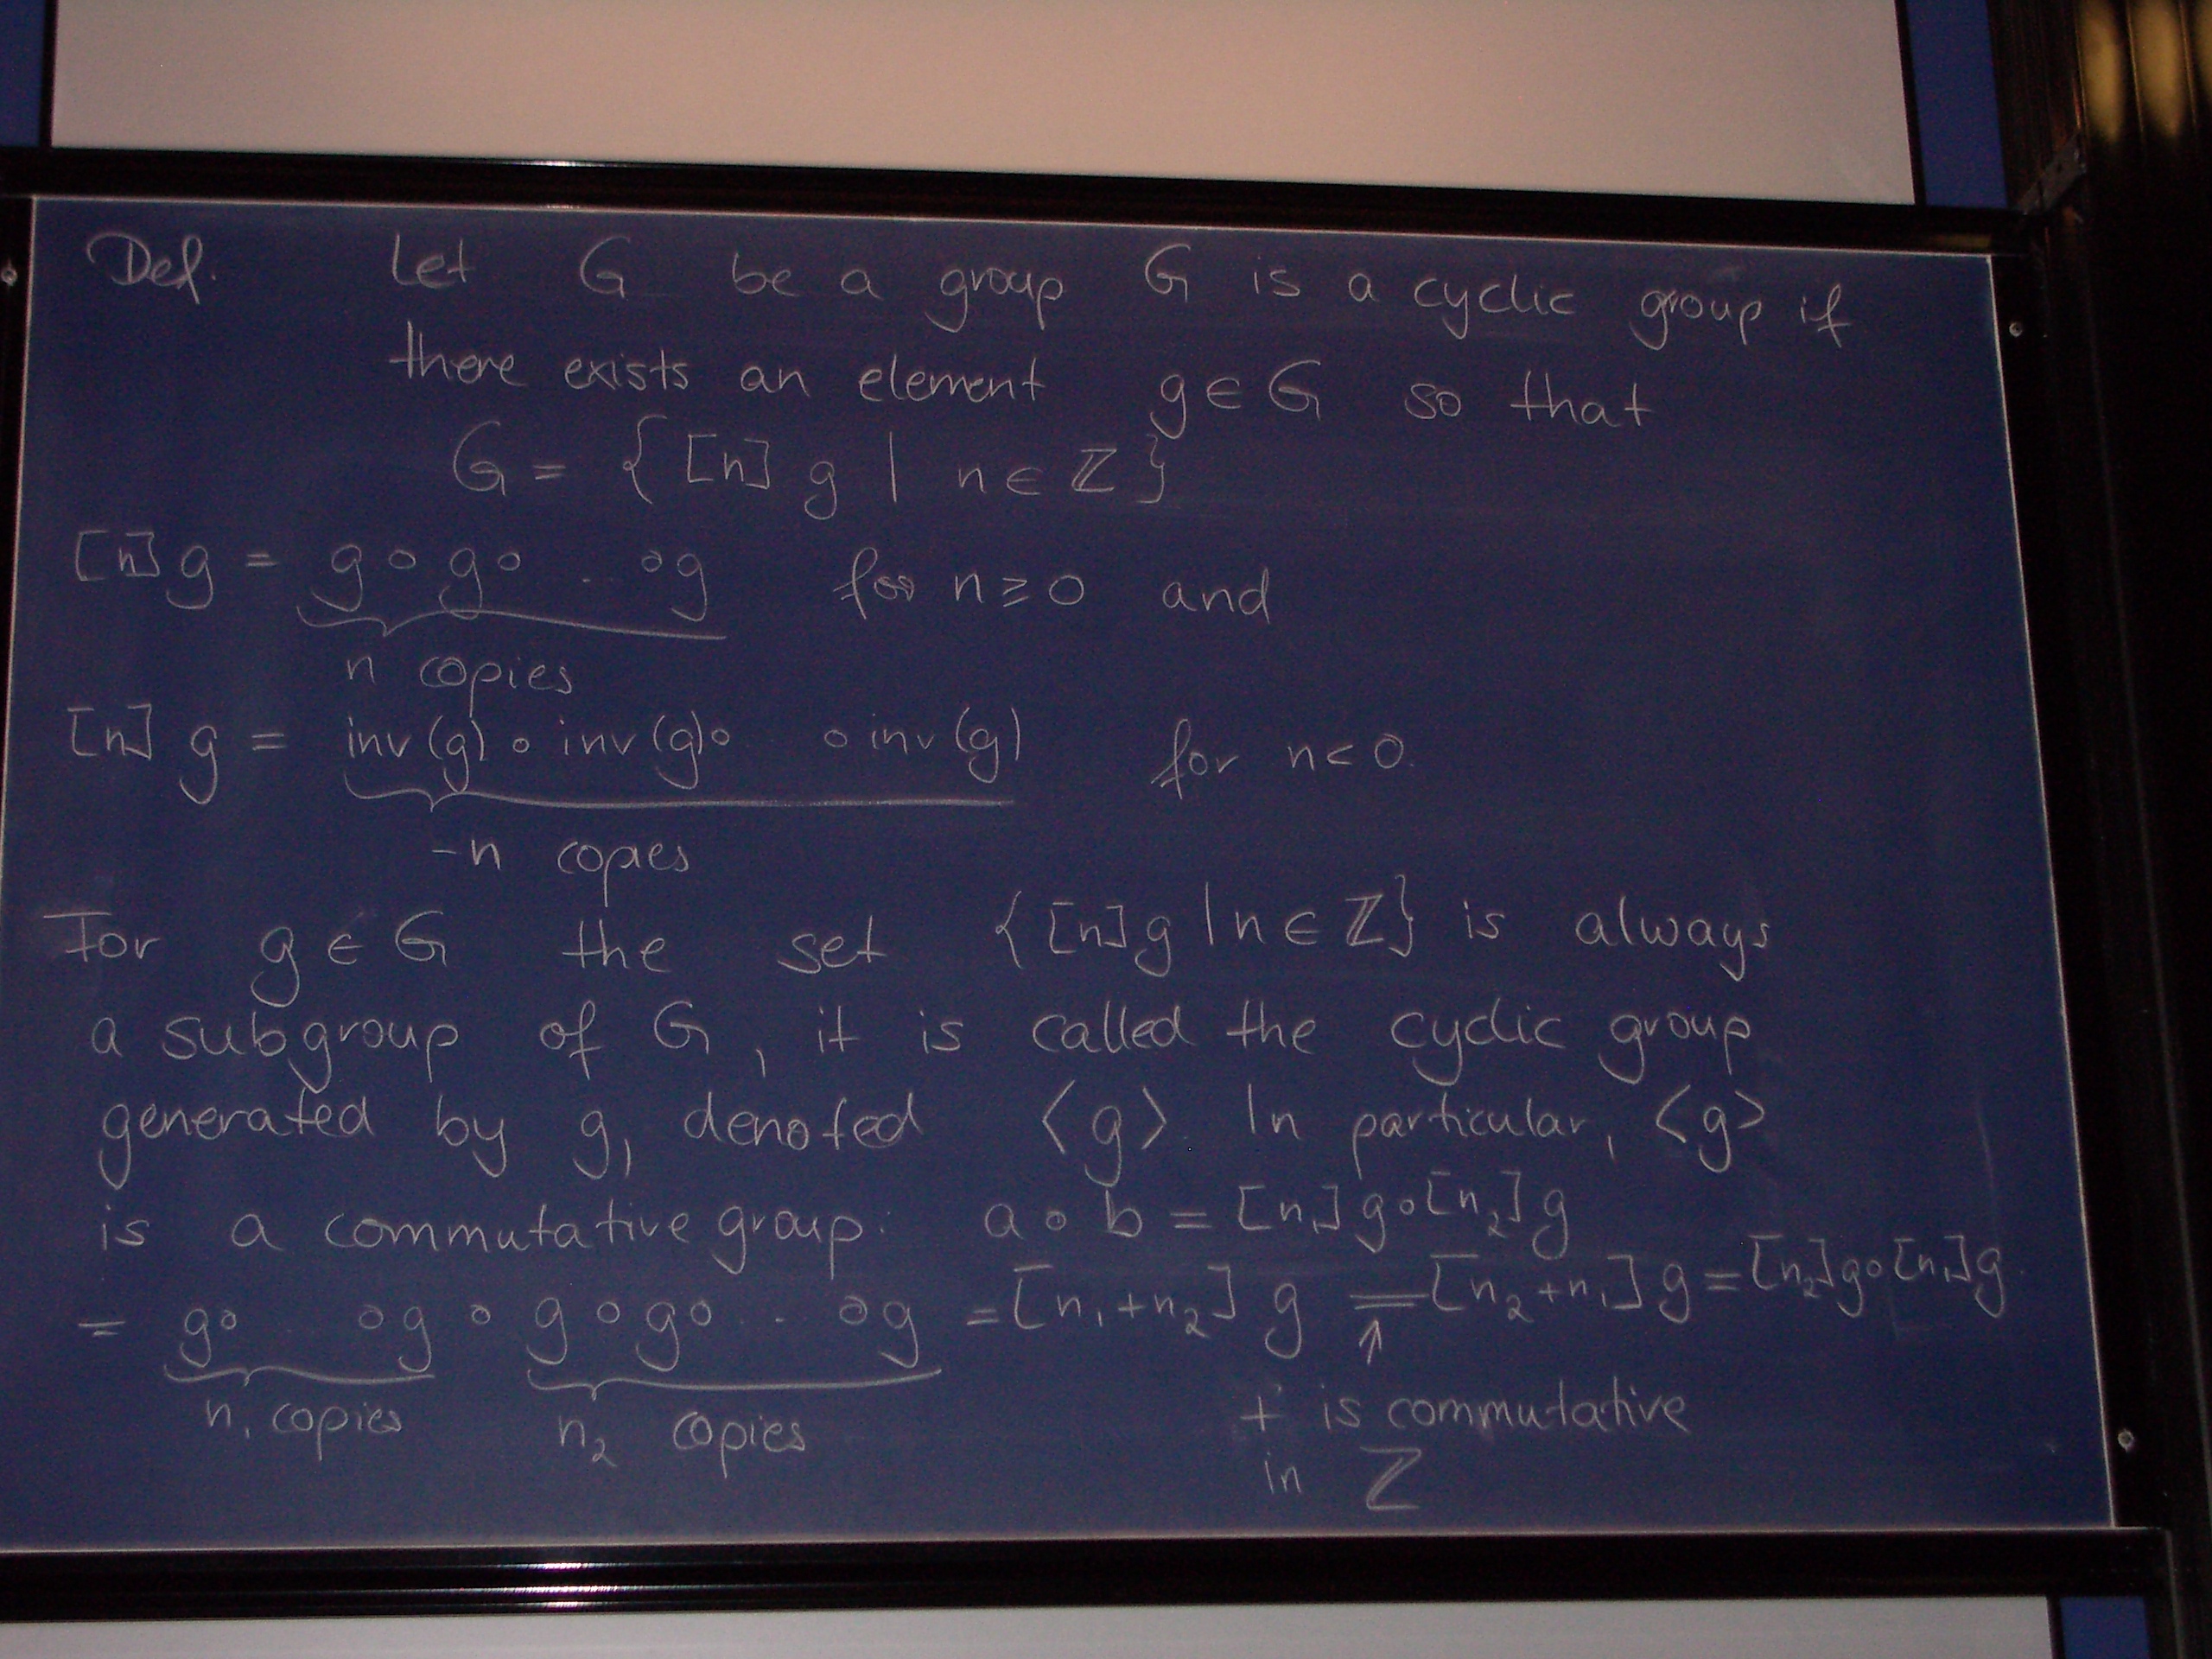 Def. Let G be a group G is a cyclic group if
there exists an element g ∈ G so that
G = { [n] g | n ∈ ℤ }
[n] g = g ∘ g ∘ .. ∘ g for n ≥ 0 and
n copies
[n] g = inv (g) ∘ inv (g) ∘ ∘ inv (g) for n < 0.
-n copies
For g ∈ G the set { [n] g | n ∈ ℤ } is always
a subgroup of G, it is called the cyclic group
generated by g, denoted <g>. In particular, <g>
is a commutative group: a ∘ b = [n₁] g ∘ [n₂] g
= g ∘ ∘ g ∘ g ∘ g ∘ ... ∘ g = [n₁ + n₂] g = [n₂ + n₁] g = [n₂] g ∘ [n₁] g.
↑
n₁ copies n₂ copies + is commutative
in ℤ